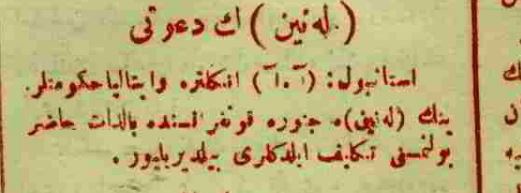 ( لەنین ) ڭ دعوتی
استانبول: (آ.آ) انكلتره وایتالیا حكومتلر.
ینڭ (لەنین)ه جنوره قونفرانسنده بالذات حاضر
بولنمسنی تكلیف ایلدكلری بیلدیریلیور .